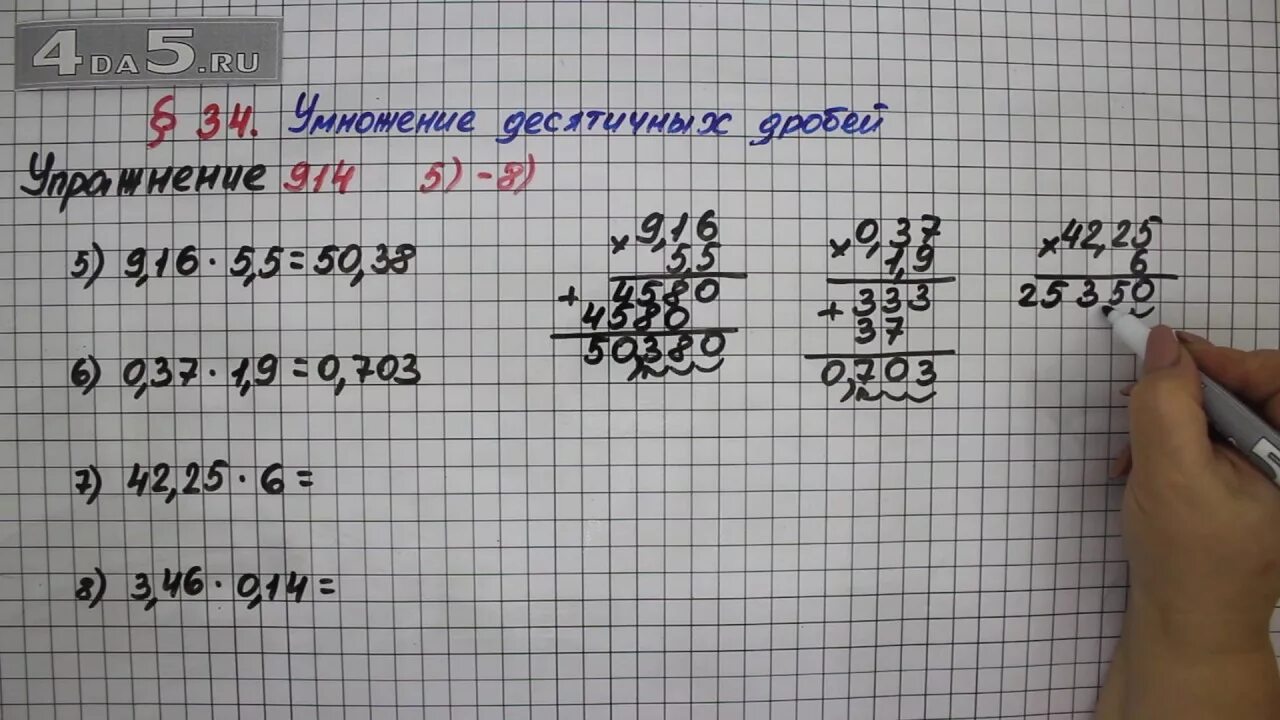 4DA5.RU
§ 34. Умножение десятичных дробей
Упражнение 914 5) - 8)
5) 9,16 · 5,5 = 50,38
6) 0,37 · 1,9 = 0,703
7) 42,25 · 6 =
8) 3,46 · 0,14 =
× 9,16
5,5
+ 4580
4580
50,380
× 0,37
1,9
+ 333
37
0,703
× 42,25
6
25350